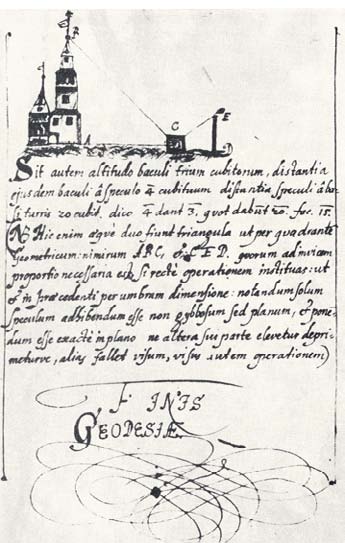 B
C
E
A
D
Sit autem altitudo baculi trium cubitorum, distantia
ejusdem baculi á speculo 4 cubituum distantia speculi á ba-
si turris 20 cubit. dico 4 dant 3, quot dabũt 20. fac. 15.
NB Hic enim æque duo fiunt triangula ut per quadrante
Geometricum: nimirum ABC, & CED, quorum ad invicem
proportio necessaria est si recte operationem instituas: ut
& in præcedenti per umbram dimensione: notandum solum
speculum adhibendum esse non globosum sed planum, & pone-
dum esse exacte in plano ne altera sui parte elevetur depri-
meturve, alias fallet visum, visus autem operationem)
FINIS
GEODESIÆ.